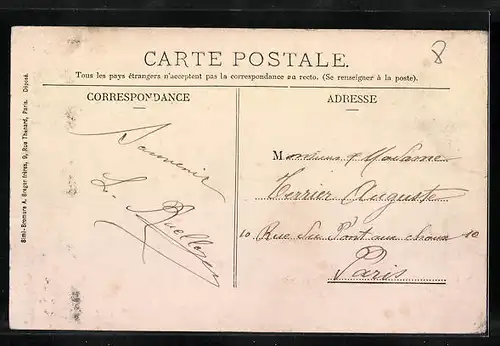 CARTE POSTALE.
8
Tous les pays étrangers n'acceptent pas la correspondance au recto. (Se renseigner à la poste).
CORRESPONDANCE
ADRESSE
Simi-Bromure A. Breger frères, 9, Rue Thénard, Paris. Déposé.
Souvenir
L.
Monsieur & Madame
Terrier Auguste
10 Rue du Pont aux choux 10
Paris